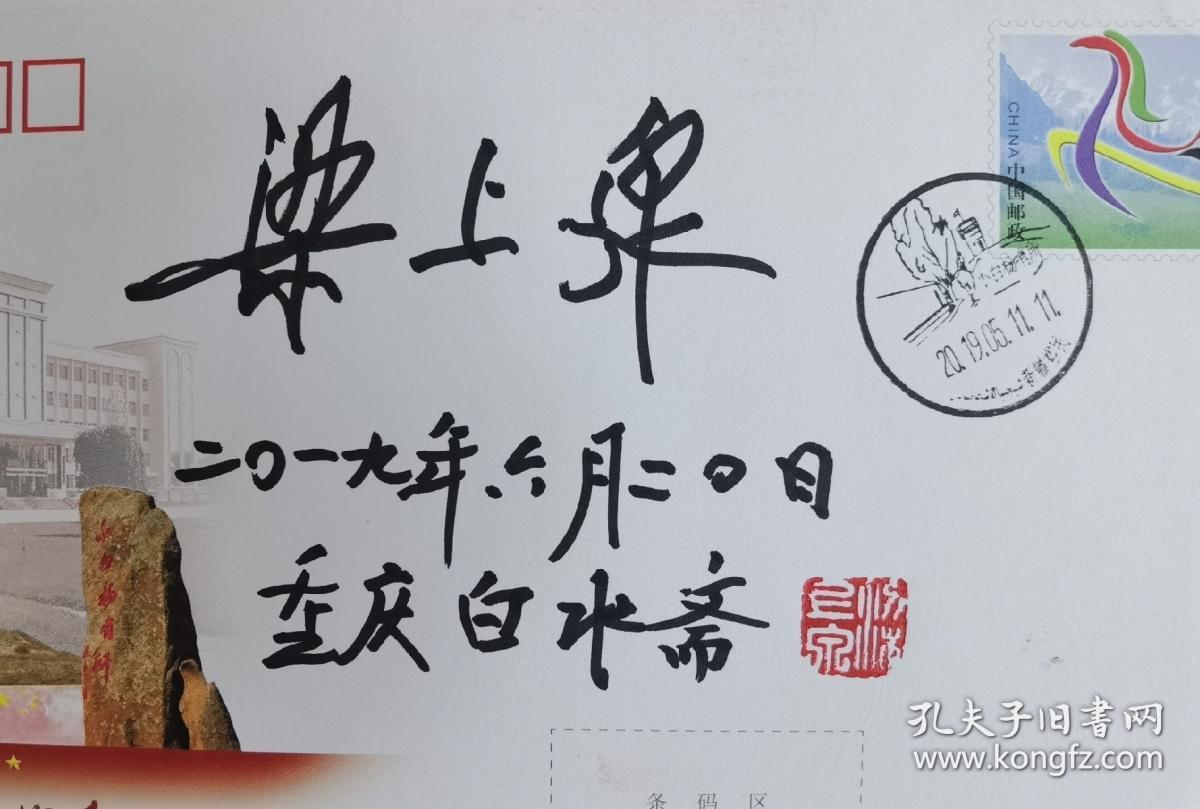 梁上泉
二〇一九年六月二〇日
重庆白水斋
CHINA 中国邮政
20.19.05.11.11.
条码区
孔夫子旧书网
www.kongfz.com